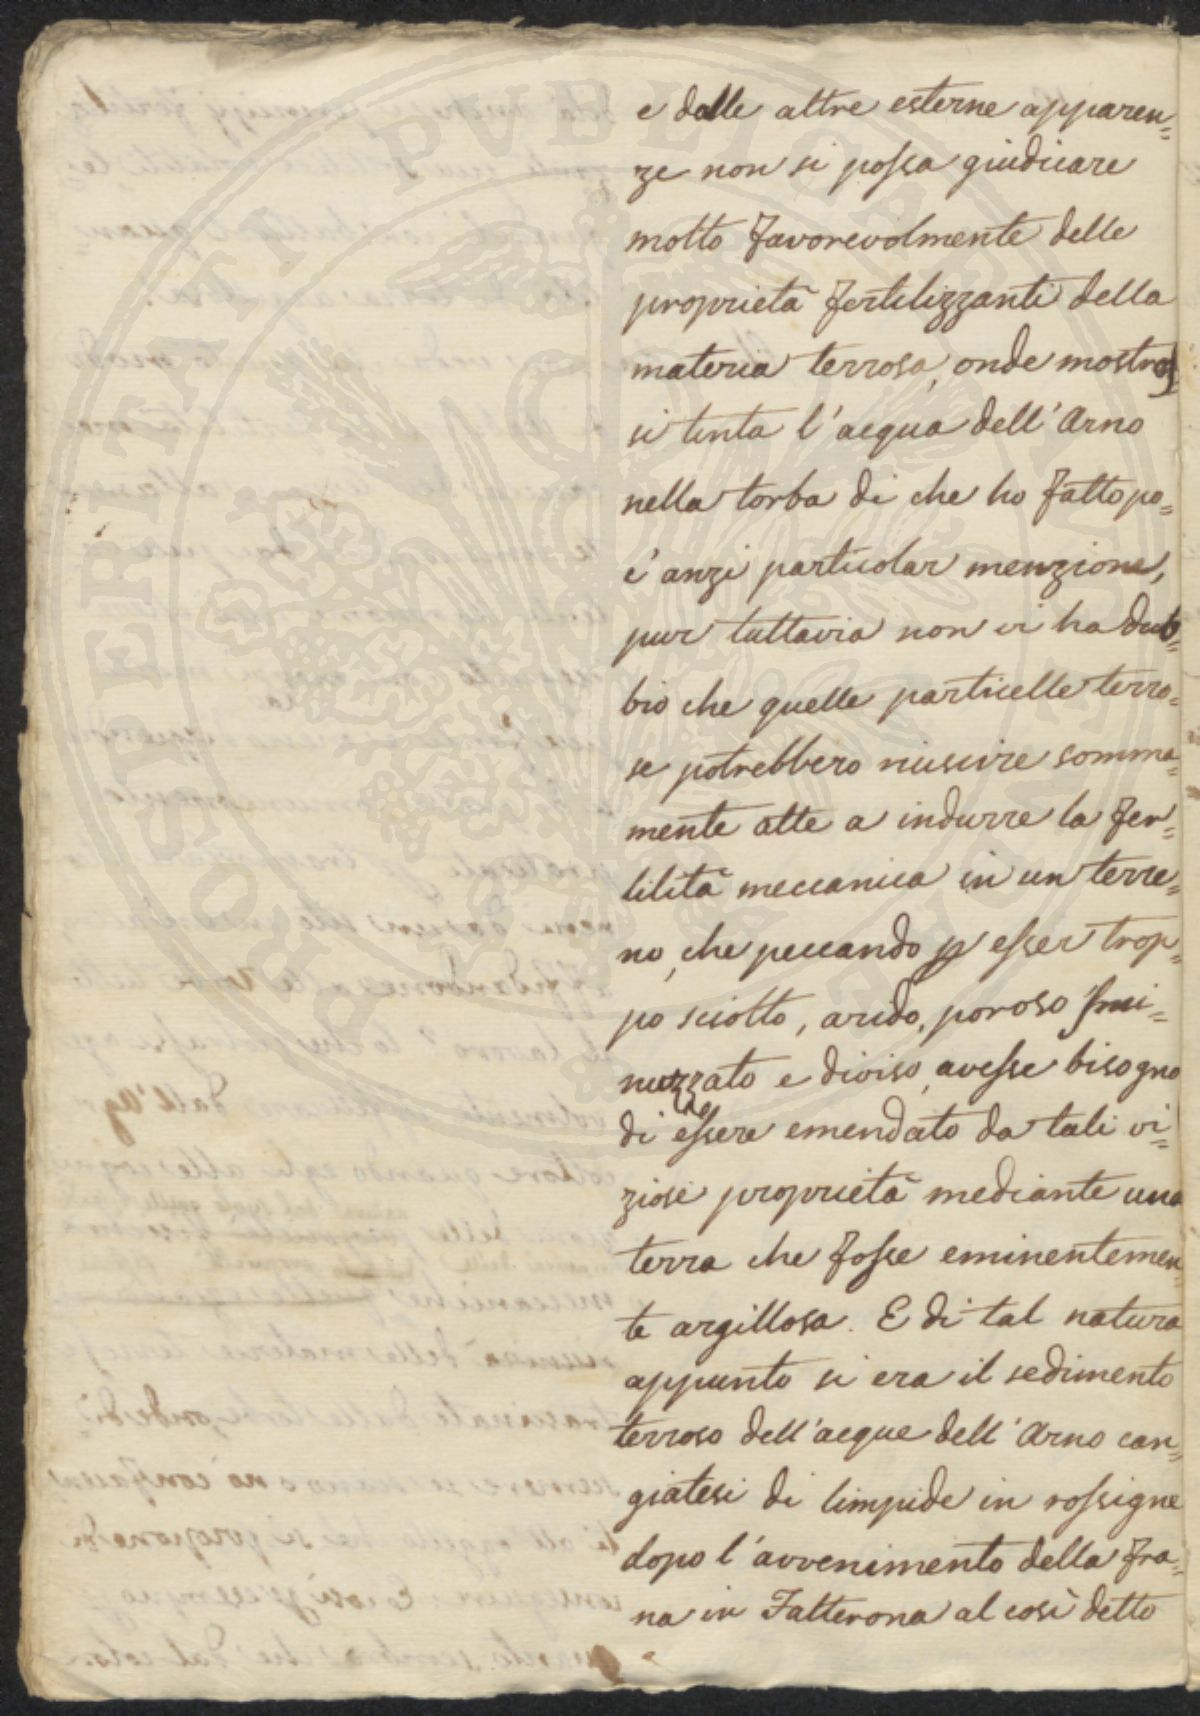 e dalle altre esterne apparen=
ze non si possa giudicare
molto favorevolmente delle
proprietà fertilizzanti della
materia terrosa, onde mostros
si tinta l'acqua dell'Arno
nella torba di che ho fatto po=
c'anzi particolar menzione,
pur tuttavia non vi ha dub=
bio che quelle particelle terro=
se potrebbero riuscire somma=
mente atte a indurre la fer=
tilità meccanica in un terre=
no, che peccando p esser trop=
po sciolto, arido, poroso smi=
nuzzato e diviso, avesse bisogno
di essere emendato da tali vi=
ziose proprietà mediante una
terra che fosse eminentemen=
te argillosa. E di tal natura
appunto si era il sedimento
terroso dell'acque dell'Arno can=
giatesi di limpide in rossigne
dopo l'avvenimento della fra=
na in Falterona al così detto
PROSPERITATI PVBLICAE